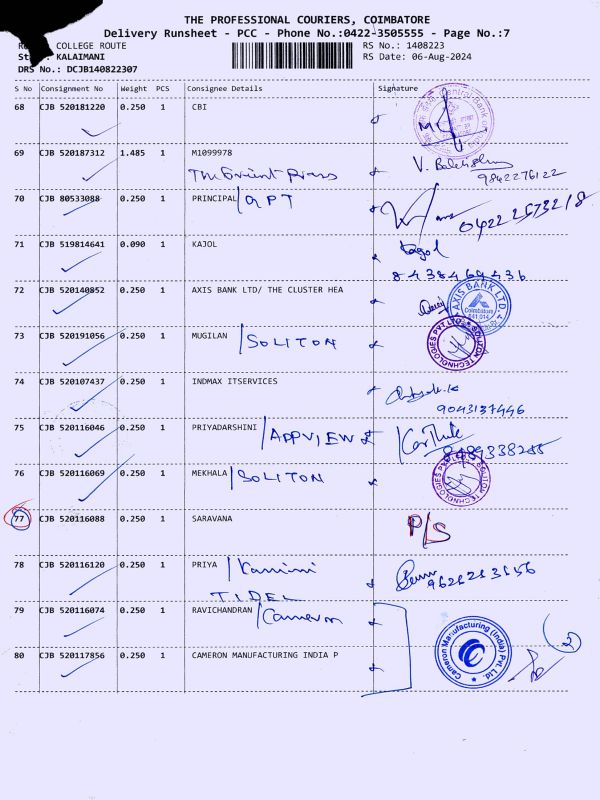 THE PROFESSIONAL COURIERS, COIMBATORE
Delivery Runsheet - PCC - Phone No.:0422-3505555 - Page No.:7
COLLEGE ROUTE RS No.: 1408223
KALAIMANI RS Date: 06-Aug-2024
DRS No.: DCJB140822307
S No Consignment No Weight PCS Consignee Details Signature
68 CJB 520181220 0.250 1 CBI
Central Bank of
69 CJB 520187312 1.485 1 M1099978
The Orient Press 9842276122
70 CJB 80533088 0.250 1 PRINCIPAL/GPT 0422 2573218
71 CJB 519814641 0.090 1 KAJOL Kajol
8438469436
72 CJB 520140852 0.250 1 AXIS BANK LTD/ THE CLUSTER HEA
AXIS BANK LTD. Coimbatore 641 014
73 CJB 520191056 0.250 1 MUGILAN/SOLITON
SOLITON TECHNOLOGIES PVT LTD
74 CJB 520107437 0.250 1 INDMAX ITSERVICES
9043137446
75 CJB 520116046 0.250 1 PRIYADARSHINI/APPVIEWX Karthik
76 CJB 520116069 0.250 1 MEKHALA/SOLITON
77 CJB 520116088 0.250 1 SARAVANA P/S
78 CJB 520116120 0.250 1 PRIYA/Kamini
TIDEL
79 CJB 520116074 0.250 1 RAVICHANDRAN/Cameron
80 CJB 520117856 0.250 1 CAMERON MANUFACTURING INDIA P
Cameron Manufacturing (India) Pvt. Ltd.
2